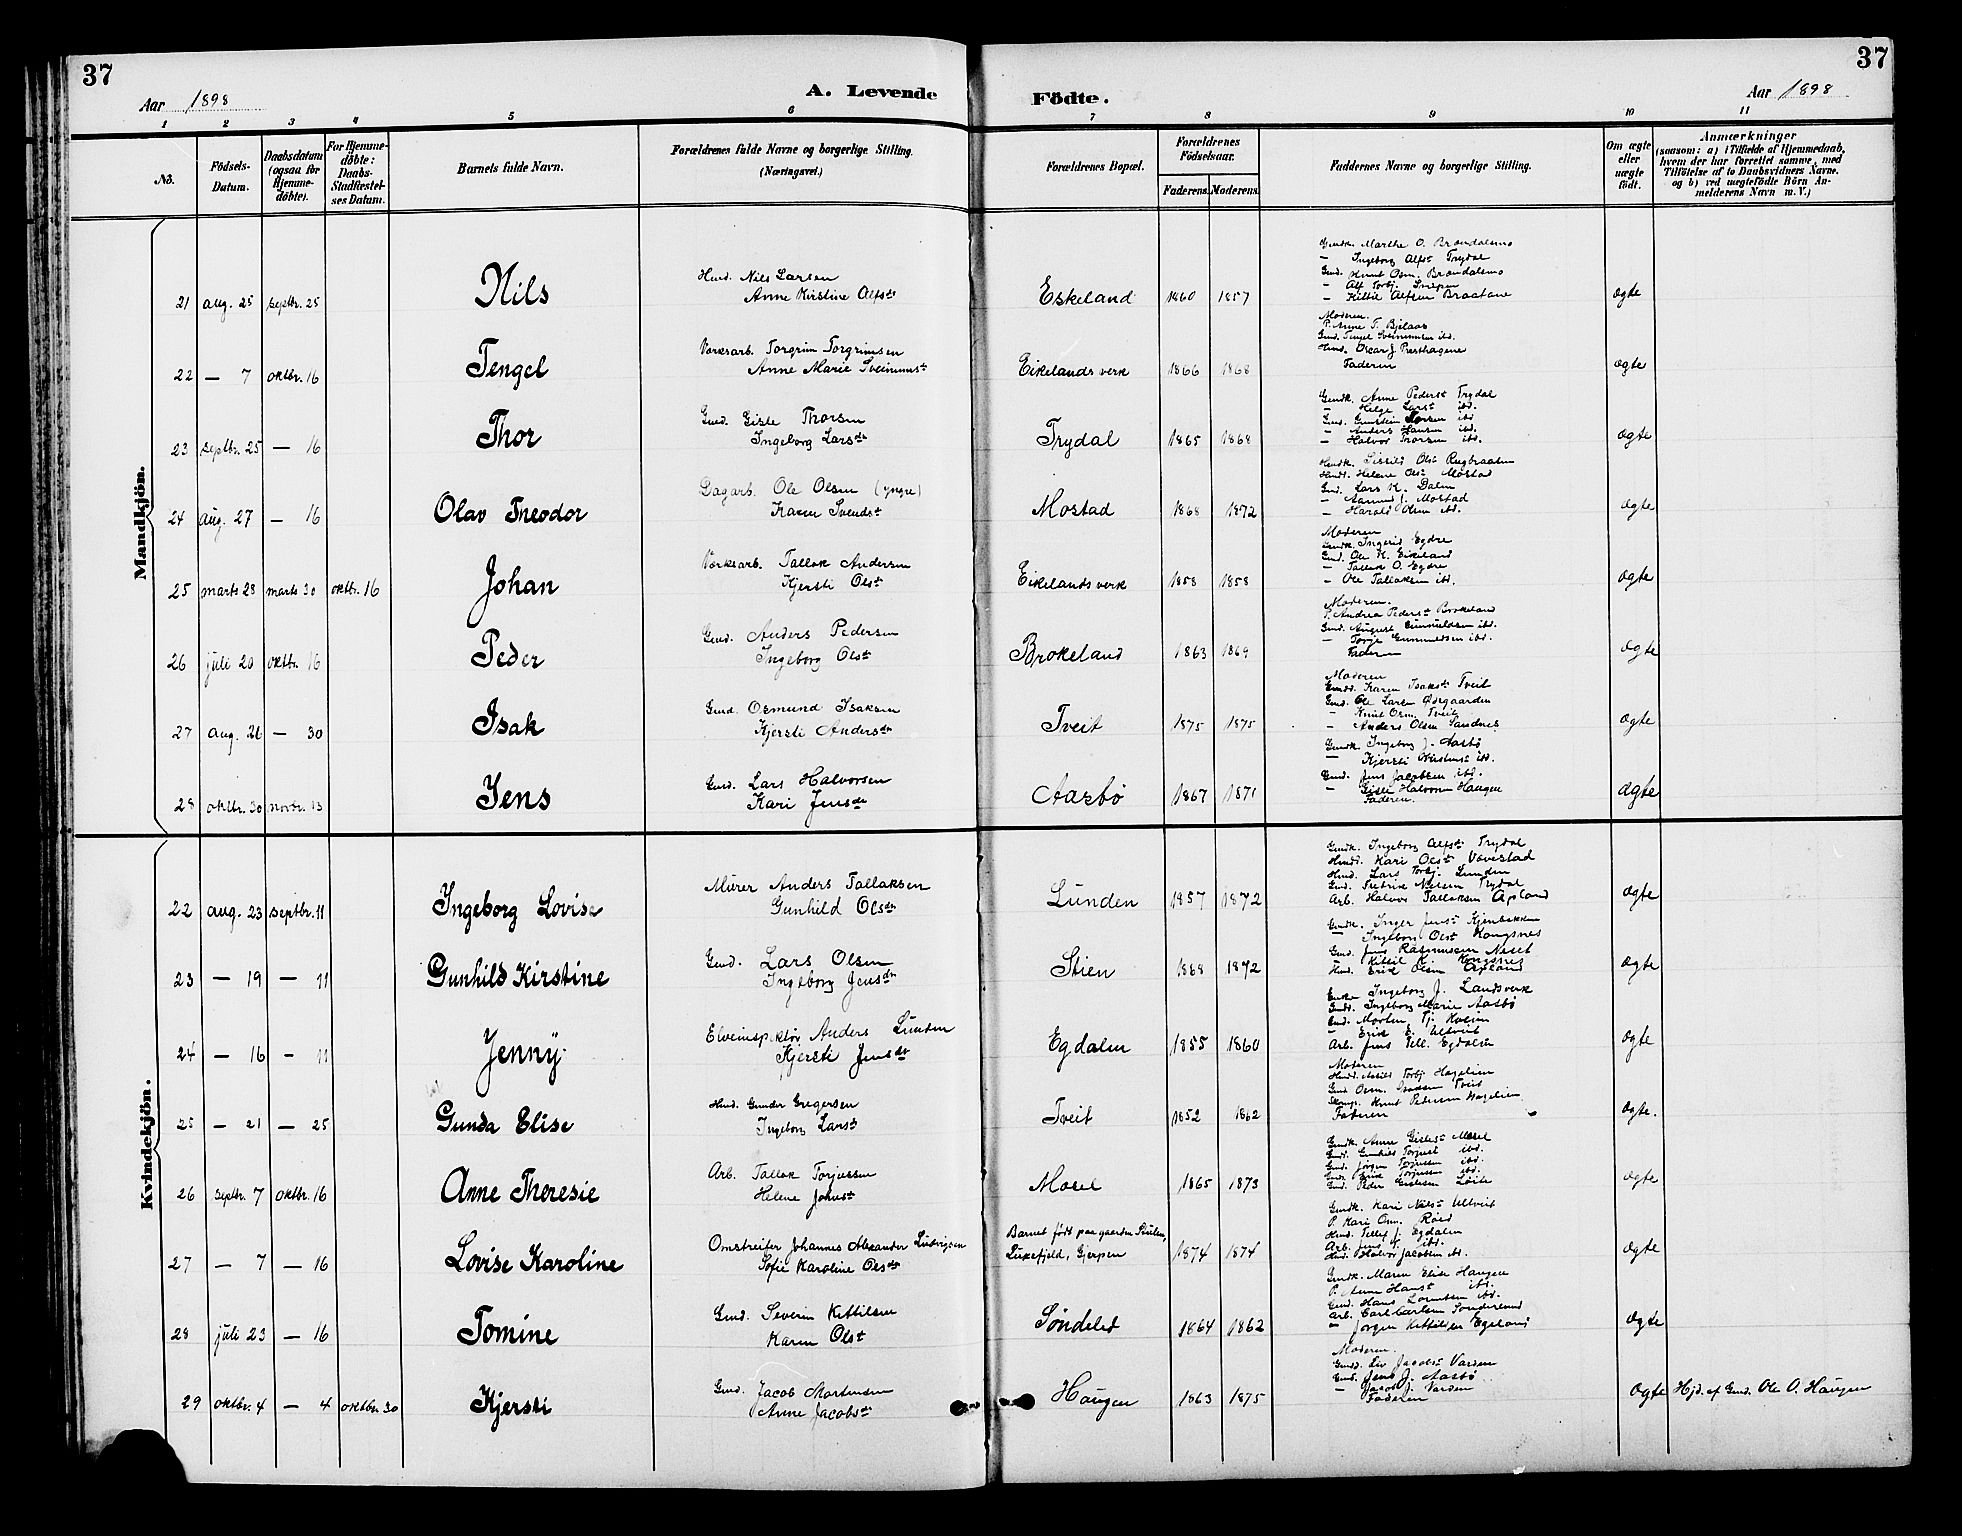 37
37
Aar 1898
A. Levende
Födte.
Aar 1898
1 2 3 4 5 6 7 8 9 10 11
No.
Födsels-Datum.
Daabsdatum (ogsaa for Hjemme-döbte).
For Hjemme-döbte: Daabs-Stadfæstel-ses Datum.
Barnets fulde Navn.
Forældrenes fulde Navne og borgerlige Stilling. (Næringsvei.)
Forældrenes Bopæl.
Forældrenes Födselsaar.
Faderens. Moderens.
Faddernes Navne og borgerlige Stilling.
Om ægte eller uægte födt.
Anmærkninger
(saasom: a) i Tilfælde af Hjemmedaab,
hvem der har forrettet samme, med
Tilföielse af to Daabsvidners Navne,
og b) ved uægtefödte Börn An-
melderens Navn m. V.)
Mandkjön.
21 aug. 25 septbr. 25 Nils
Nils Larsen
Anne Kirstine Alfsdr
Eskeland 1860 1857
Gmdk. Marthe O. Brøndalsmo
— Ingeborg Alfsdt Trydal
Gmd. Knut Osm. Brøndalsmo
— Alf Torbj.
— Kittil Alfsen Braatane
ægte
22 — 7 oktbr. 16 Tengel
Værksarb. Torgrim Torgrimsen
Anne Marie
Eikelands verk 1866 1868
Moderen.
P. Anne T.
Gmd. Tengel
Oscar J. Præsthagene
Faderen
ægte
23 septbr. 25 — 16 Thor
Gmd. Gisle Thorsen
Ingeborg Larsdr
Trydal 1865 1868
Gmdk. Anne Pedersdt Trydal
— Helge Larsdt ibd.
Gmd. Gunstein ibd
— Anders Hansen ibd.
— Halvor Thorsen ibd.
ægte
24 aug. 27 — 16 Olav Theodor
Dagarb. Ole Olsen (yngre)
Karen Svendsdt
Mostad 1868 1872
Olsdt
Helene Olsdt Mostad
Gmd. Lars K. Dalen
— Aanund J. Mostad
— Harald Olsen ibd.
ægte
25 marts 28 marts 30 oktbr. 16 Johan
Værksarb. Tallak Andersen
Kjersti Olsdt
Eikelands verk 1858 1858
Moderen
Gmdk. Ingerid Egdre
Gmd. Ole K. Eikeland
— Tallak O. Egdre
— Ole Tallaksen ibd.
ægte
26 juli 20 oktbr. 16 Peder
Gmd. Anders Pedersen
Ingeborg Olsdt
Brokeland 1863 1869
Moderen.
P. Andrea Pedersdt Brokeland
Gmd. August Gunnuldsen ibd.
— Torje Gunnuldsen ibd.
Faderen
ægte
27 aug. 26 — 30 Isak
Gmd. Osmund Isaksen
Kjersti Andersdr
Tveit 1875 1875
Moderen
Karen Isaksdt Tveit
Gmd. Ole Larsen Øsrgaarden
— Knut Osm. Tveit
— Anders Olsen Sandnes
ægte
28 oktbr. 30 novbr. 13 Jens
Gmd. Lars Halvorsen
Kari Jensdr
Aasbø 1867 1871
Gmdk. Ingeborg J. Aasbø
— Kjersti ibd.
Gmd. Jens Jacobsen ibd.
— Gisle Halvorsen Haugen
Faderen.
ægte
Kvindekjön.
22 aug. 23 septbr. 11 Ingeborg Lovise
Murer Anders Tallaksen
Gunhild Olsdr
Lunden 1857 1872
Gmdk. Ingeborg Alfsdt Trydal
Kari Olsdt Vævestad
Lars Torbj. Lunden
Gmd. Fredrik Nielsen Trydal
Arb. Halvor Tallaksen Apland
ægte
23 — 19 — 11 Gunhild Kirstine
Gmd. Lars Olsen
Ingeborg Jensdr
Stien 1868 1872
Gmdk. Inger Jensdt
— Ingeborg Olsdt Kongsnes
Gmd. Jens Rasmussen Neset
— Kittil K. Kongsnes
Erik Olsen Apland
ægte
24 — 16 — 11 Jenny
Elveinspektør Anders Lunden
Kjersti Jensdr
Egdalen 1855 1860
Enke Ingeborg J. Landsverk
Ingeborg Marie Aasbø
Gmd. Morten Tj.
— Erik E. Ulltveit
Arb. Jens Tell. Egdalen
ægte
25 — 21 — 25 Gunda Elise
Gunder Gregersen
Ingeborg Larsdt
Tveit 1852 1862
Moderen
Torbj. Hagelien
Gmd Osm. Isaksen Tveit
Knut Pedersen Hagelien
Faderen
ægte.
26 septbr. 7 oktbr. 16 Anne Theresie
Arb. Tallak Torjussen
Helene Johnsdt
Mosel 1865 1873
Gmdk. Anne Gislesdt Mosel
Gunhild Torjusdt ibd.
Gmd. Jörgen Torjussen ibd.
Torjussen ibd.
Gmd. Peder Gislesen
ægte
27 — 7 — 16 Lovise Karoline
Omstreifer Johannes Alexander Ludvigsen
Sofie Karoline Olsdr
Barnet født paa gaarden
Luxefjeld, Gjerpen 1874 1874
Gmdk. Kari Nilsdt Ulltveit
P. Kari Osm. Røed
Tellef J. Egdalen
Arb. Jens J. ibd.
Halvor Jacobsen ibd.
ægte
28 juli 23 — 16 Tomine
Gmd. Severin Kittilsen
Karen Olsdt
Søndeled 1864 1862
Gmdk. Maren Elise Haugen
P. Anne Hansdt ibd.
Gmd. Hans Lorentsen ibd.
Arb. Carl Carlsen
— Jørgen Kittilsen Egeland
ægte
29 oktbr. 4 — 4 oktbr. 30 Kjersti
Gmd. Jacob Mortensen
Anne Jacobsdr
Haugen 1863 1875
Moderen.
Liv Jacobsdt Varden
Gmd. Jens J. Aasbø
— Jacob J. Varden
Faderen
ægte Hjd. af Gmd. Ole O. Haugen